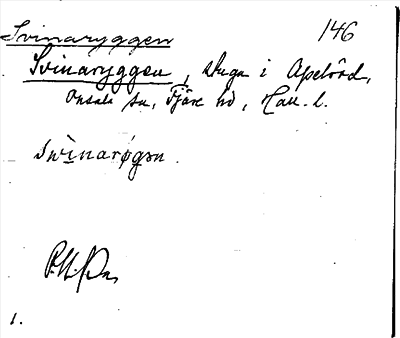 Svinaryggen 146
Svinaryggen, stuga i Apelröd,
Onsala sn, Fjäre hd, Hall. l.
swìnarøgən.
1.